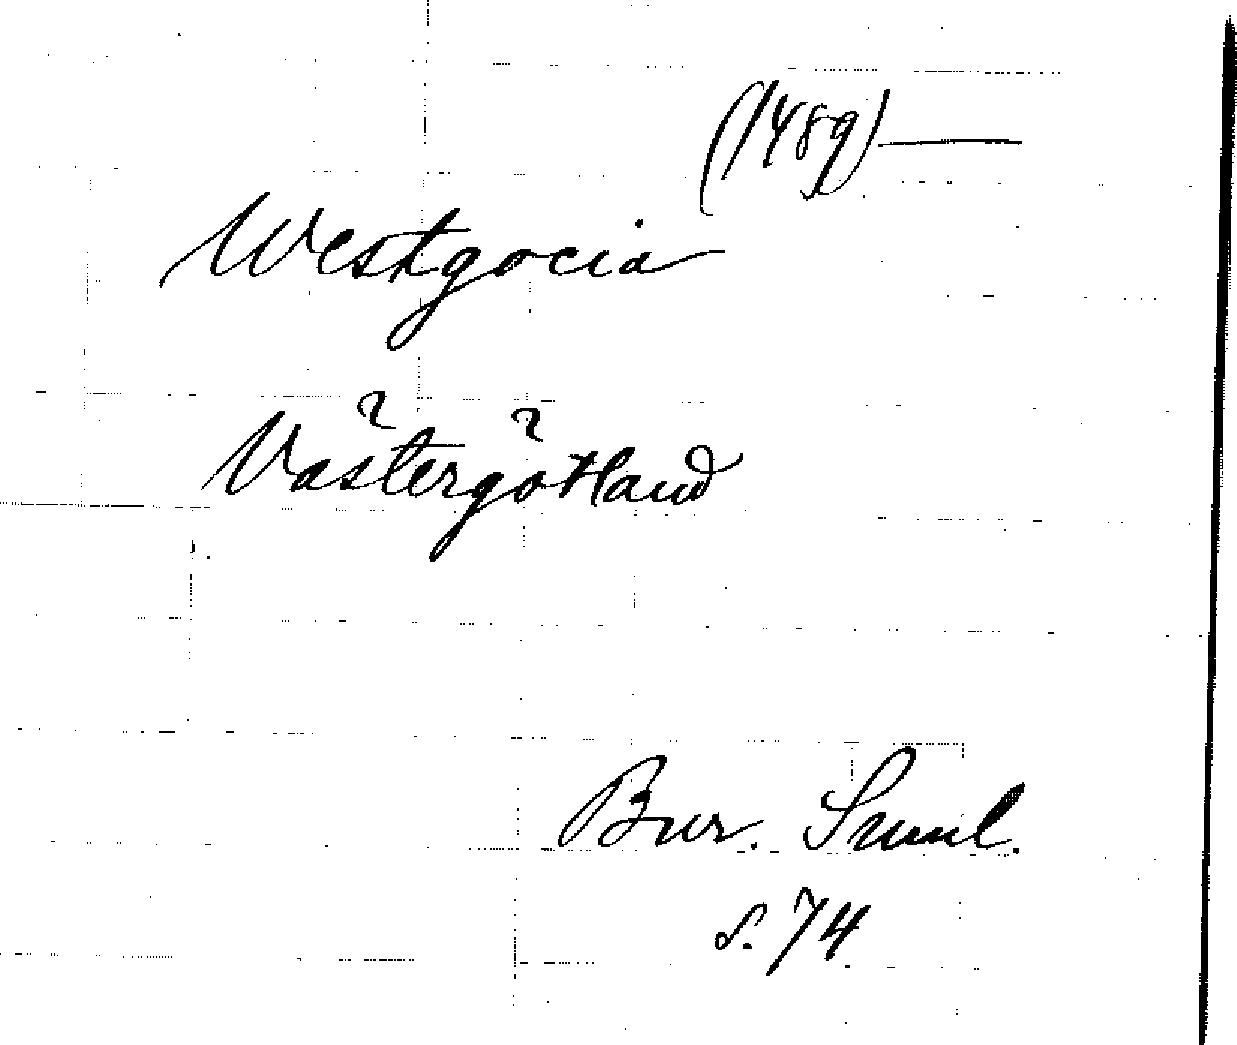 (1489) —
Westgocia
Västergötland
Bur. Suml.
s. 74